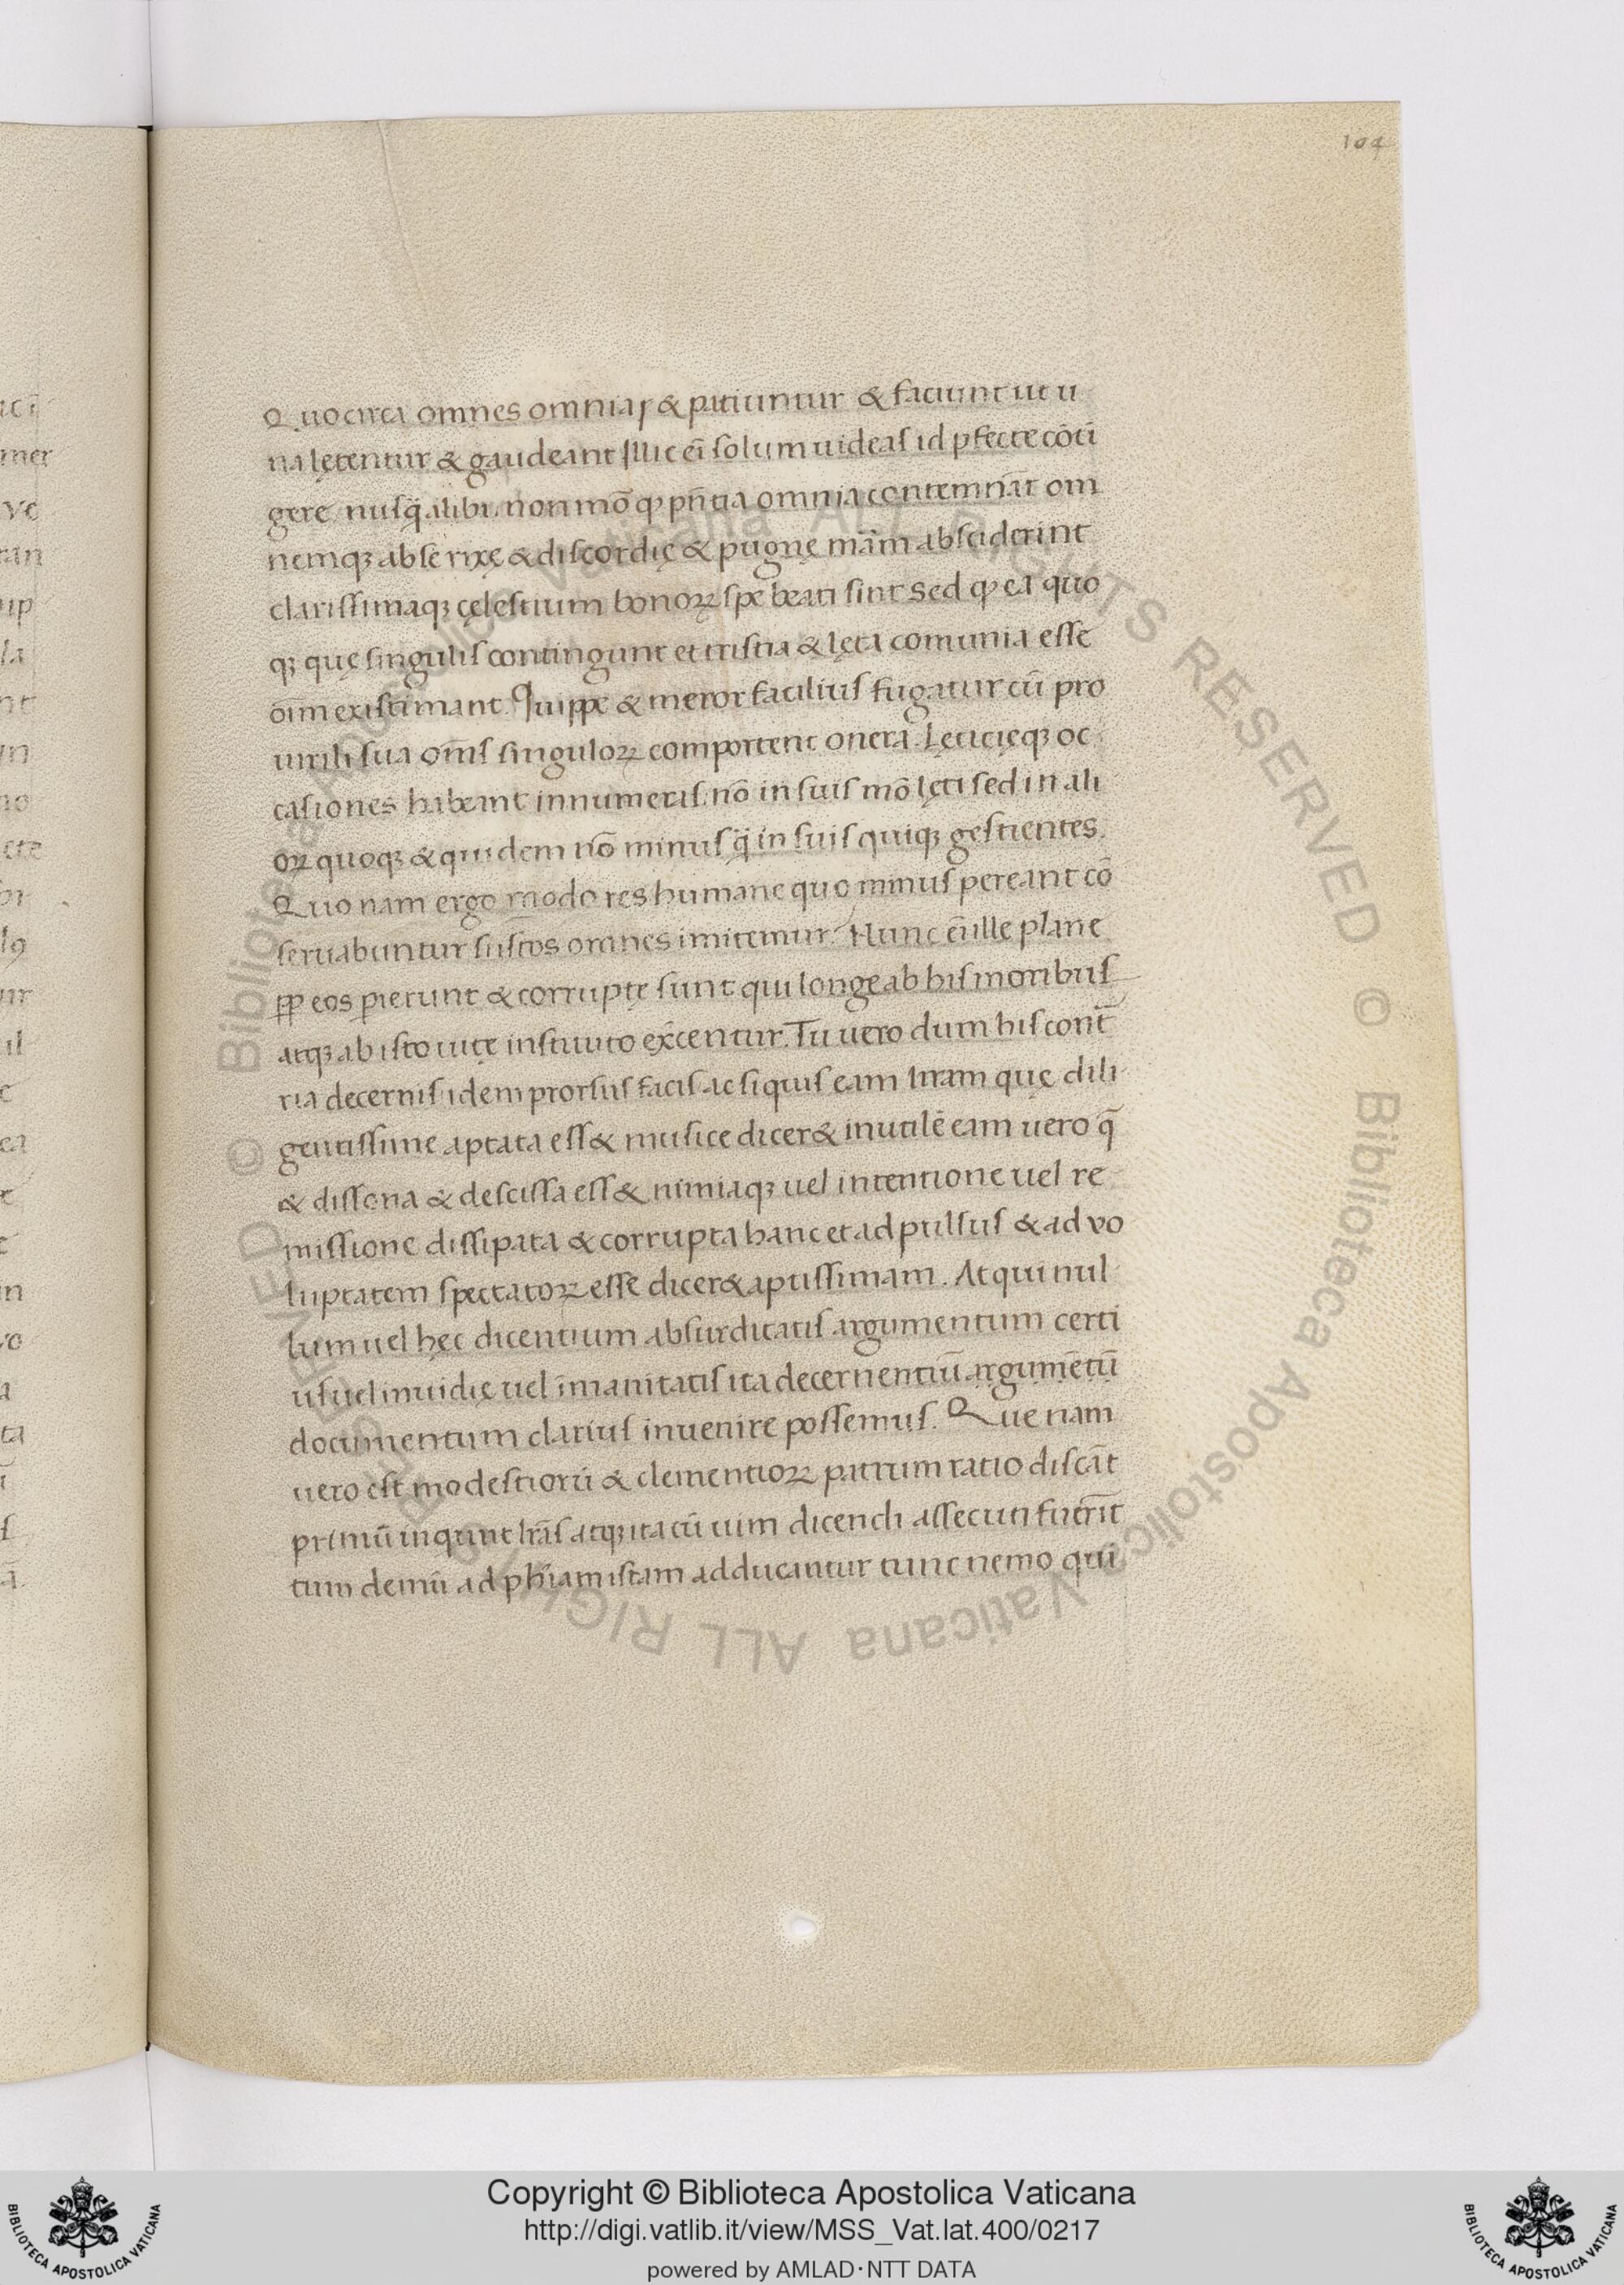 104
Quocirca omnes omnia & patiuntur & faciunt ut u
na lętentur & gaudeant Illic eī solum uideas id ꝑfecte cōti
gere, nusq̄ alibi. non mō qꝫ pn̄tia omnia contemnāt om
nemqꝫ ab se rixę & discordię & pugnę mām absciderint
clarissimaqꝫ cęlestium bonoꝝ spe beati sint sed ꝙ ea quo
qꝫ quę singulis contingunt et tristia & lęta comunia esse
oīm existimant. Quippe & meror facilius fugatur cū pro
uirili sua om̄s singuloꝝ comportent onera. Lęticięqꝫ oc
casiones habeant innumeras. nō in suis mō lęti sed in ali
oꝝ quoqꝫ & quidem nō minus q̄ in suis quiqꝫ gestientes.
Quo nam ergo modo res humane quo minus pereant cō
seruabuntur si istos omnes imitemur. Nunc eīi ille plane
ꝓꝑ eos ꝑierunt & corruptę sunt qui longe ab his moribus
atqꝫ ab isto uitę instituto exc̄entur. Tu uero dum his cont̄
ria decernis idem prorsus facis ac siquis eam liram quę dili
gentissime aptata ess& musice dicer& inutilē eam uero q̄
& dissona & descissa ess& nimiaqꝫ uel intentione uel re
missione dissipata & corrupta hanc et ad pulsus & ad vo
luptatem spectatoꝝ esse dicer& aptissimam. At qui nul
lum uel hęc dicentium absurditatis argumentum certi
us uel inuidię uel īmanitatis ita decernentiū argumētū
documentum clarius inuenire possemus. Que nam
uero est modestiorū & clementioꝝ patrum ratio discāt
primū inquint lrās atqꝫ ita cū uim dicendi assecuti fuerīt
tum demū ad phīam istam adducantur tunc nemo qui
uci
mer
vo
ran
la
nt
no
ete
bi
il
c
ea
e
in
vo
a
ta
© Biblioteca Apostolica Vaticana ALL RIGHTS RESERVED
© Biblioteca Apostolica Vaticana ALL RIGHTS RESERVED
Copyright © Biblioteca Apostolica Vaticana
http://digi.vatlib.it/view/MSS_Vat.lat.400/0217
powered by AMLAD·NTT DATA
BIBLIOTECA APOSTOLICA VATICANA
BIBLIOTECA APOSTOLICA VATICANA